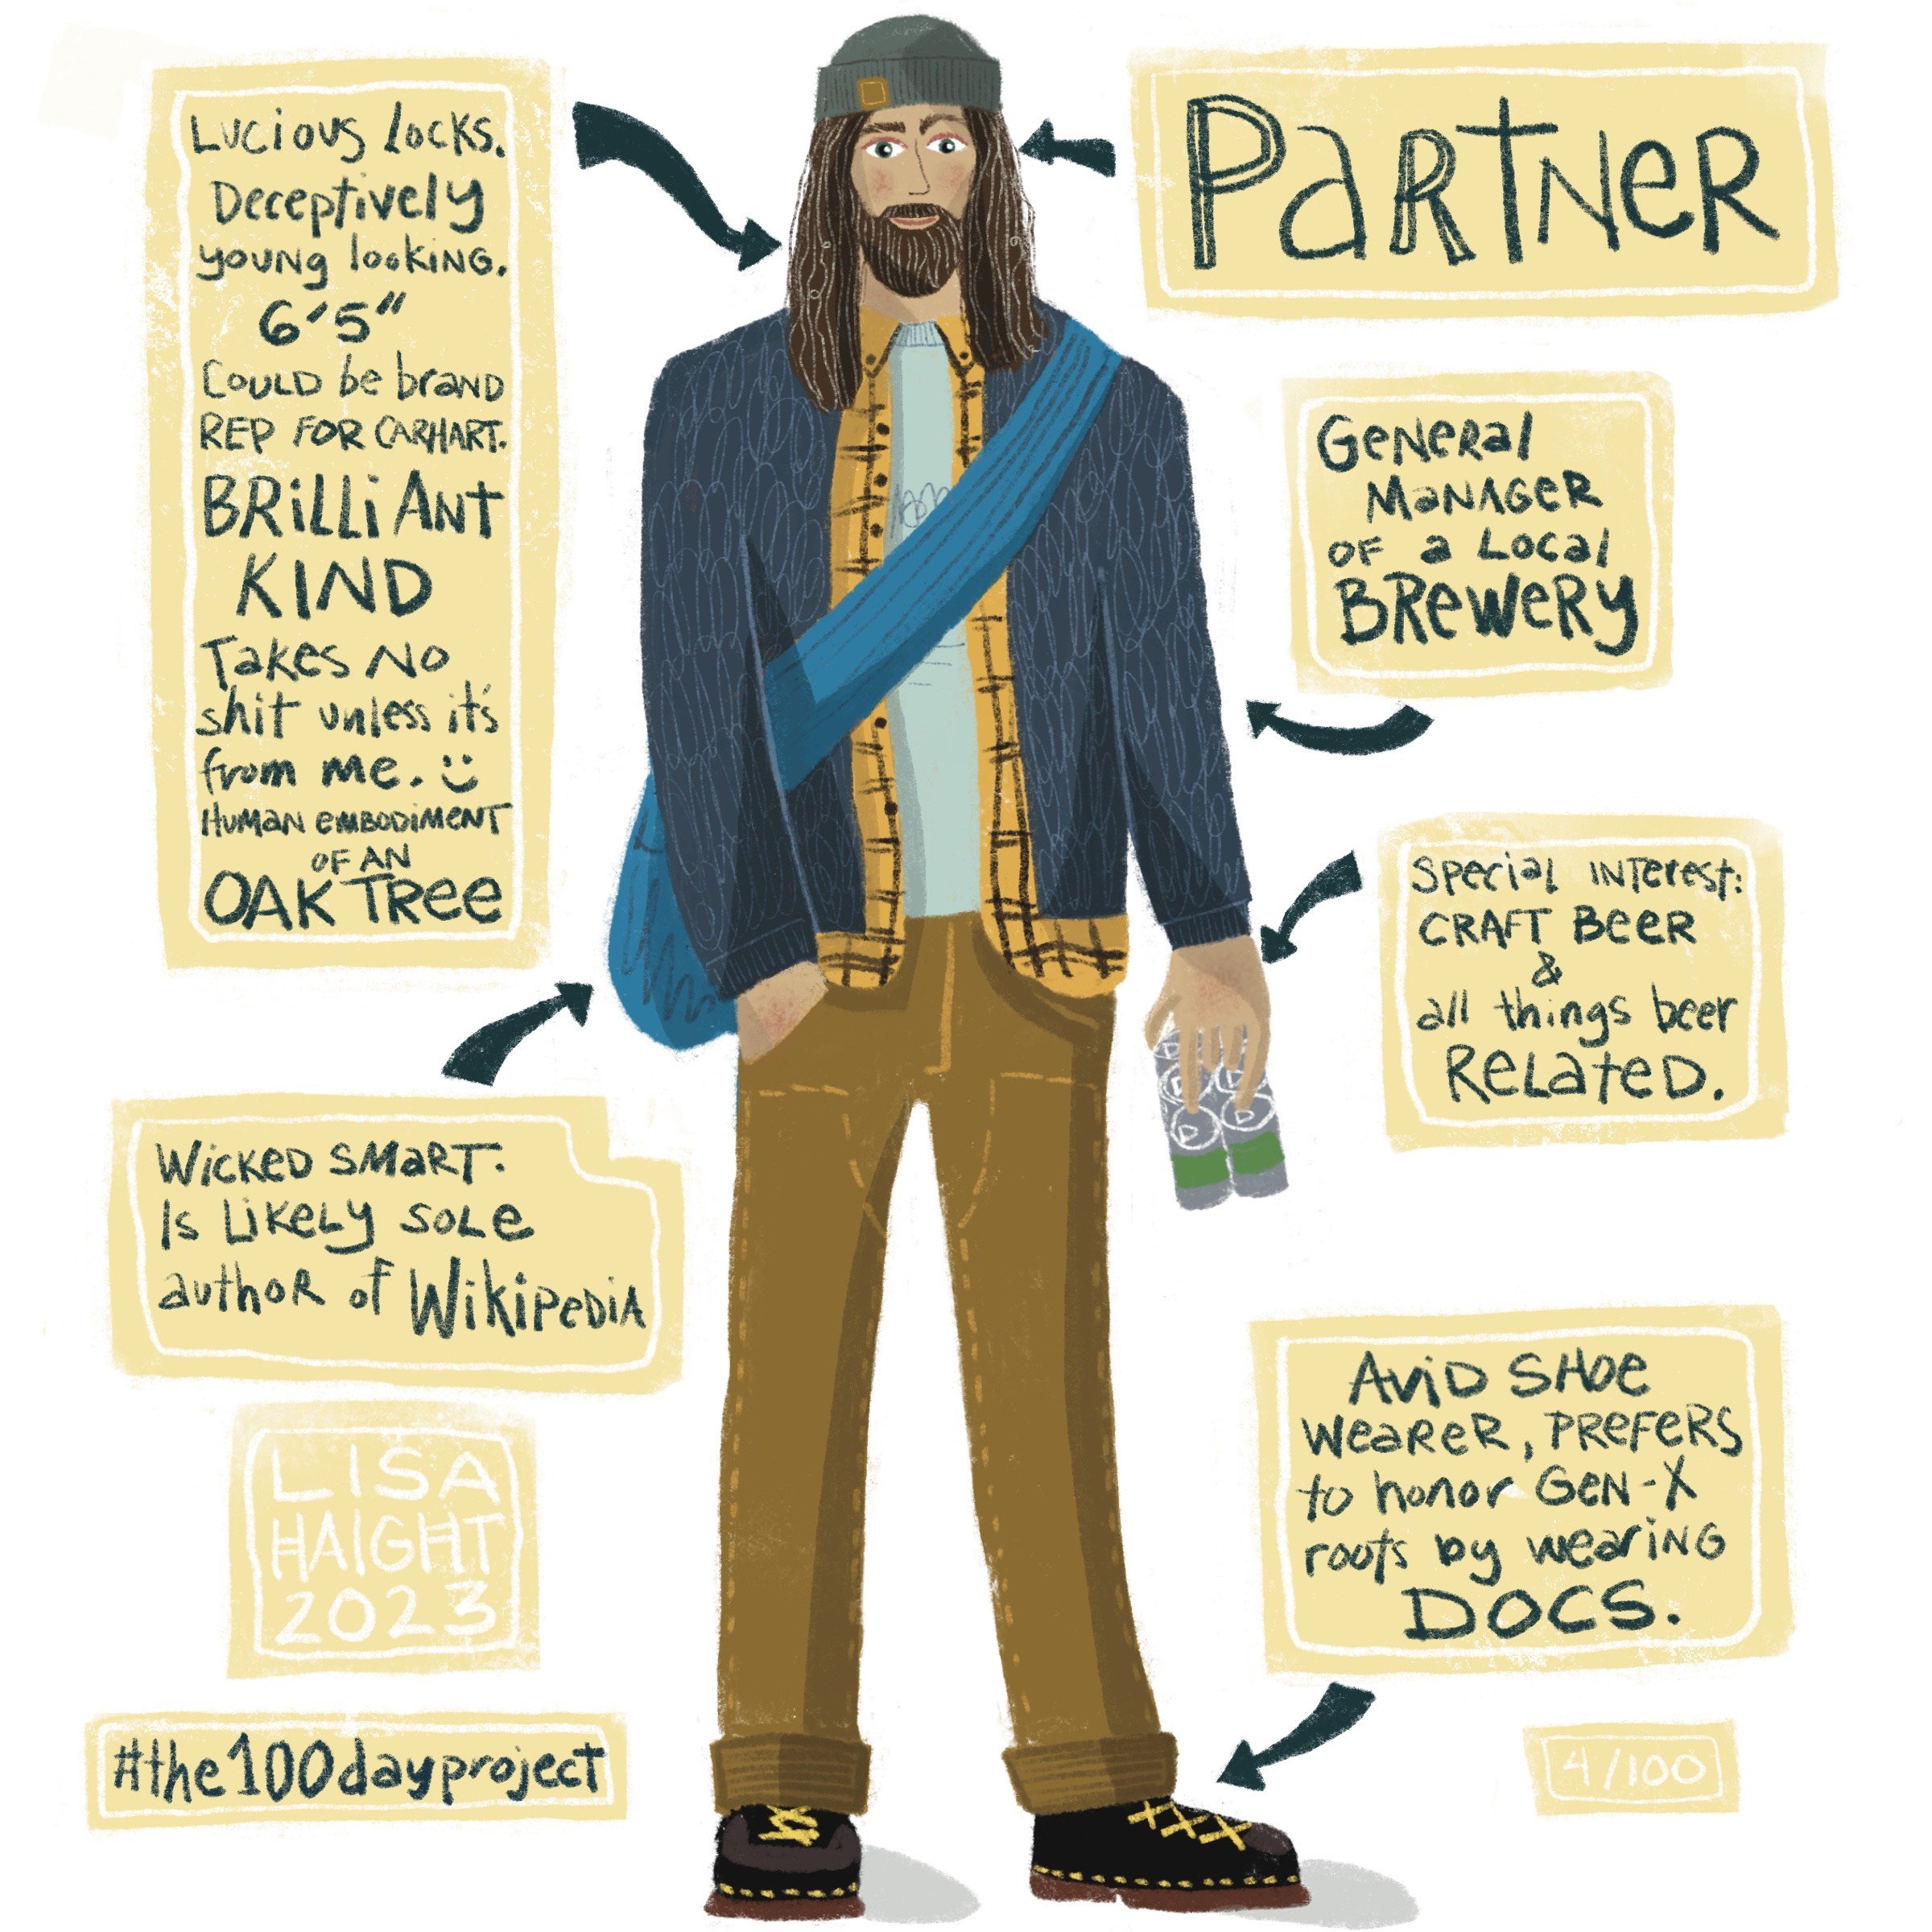 Lucious locks.
Deceptively
young looking.
6'5"
Could be brand
rep for Carhart.
BRILLIANT
KIND
Takes no
shit unless it's
from me. :)
Human embodiment
of an
OAK TREE
PARTNER
General
Manager
of a Local
BREWERY
Special Interest:
CRAFT BEER
&
all things beer
RELATED.
Wicked smart.
Is likely sole
author of Wikipedia
Avid shoe
wearer, prefers
to honor Gen-X
roots by wearing
DOCS.
LISA
HAIGHT
2023
#the100dayproject
4/100